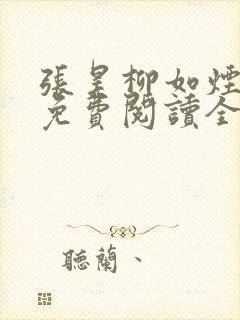 張昊柳如煙
免費閱讀全
聽蘭、